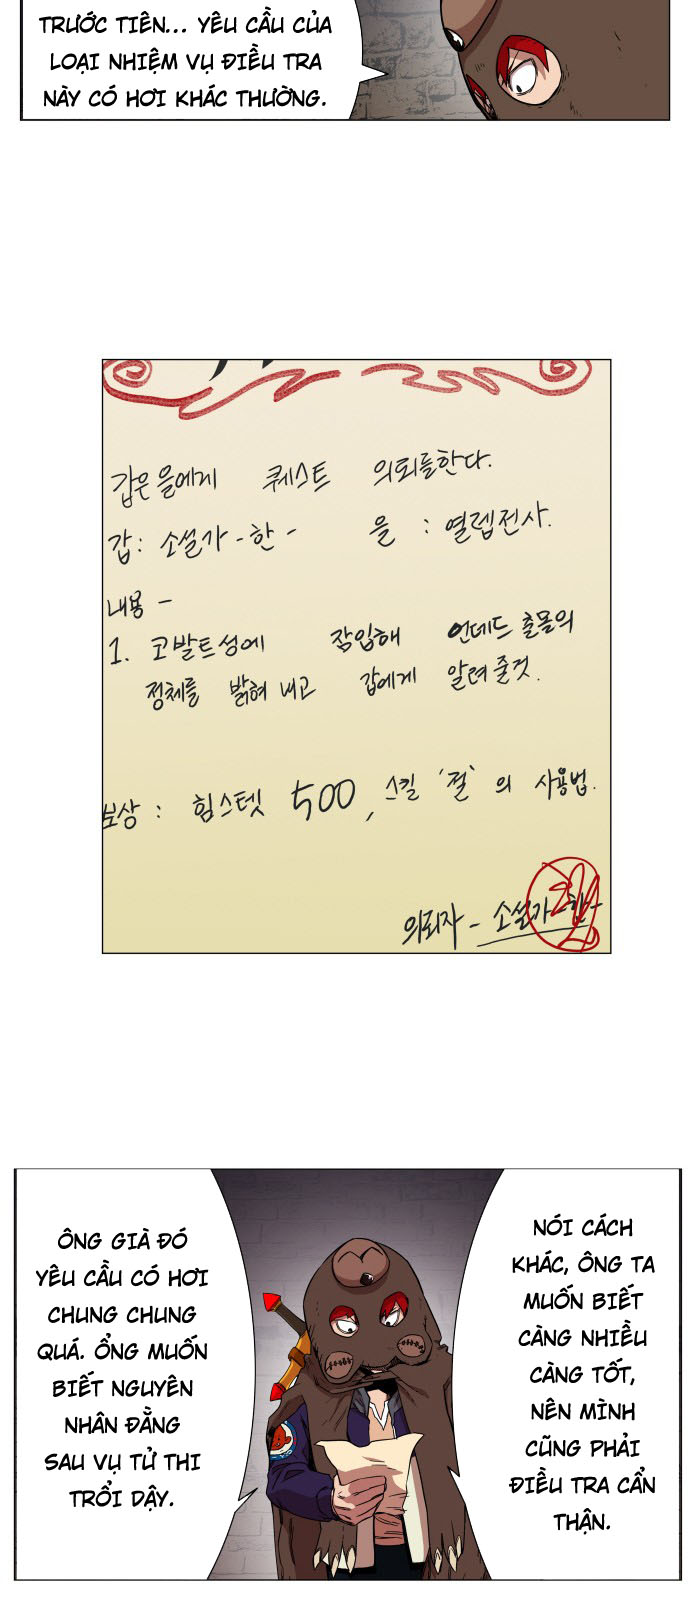 TRƯỚC TIÊN... YÊU CẦU CỦA
LOẠI NHIỆM VỤ ĐIỀU TRA
NÀY CÓ HƠI KHÁC THƯỜNG.
갑은 을에게 퀘스트 의뢰를한다.
갑: 소설가 -한- 을 : 열렙전사.
내용 -
1. 코발트성에 잠입해 언데드 출몰의
정체를 밝혀 내고 갑에게 알려줄것.
보상 : 힘스텟 500, 스킬 '절'의 사용법.
의뢰자 - 소설가 -한-
ÔNG GIÀ ĐÓ
YÊU CẦU CÓ HƠI
CHUNG CHUNG
QUÁ. ỔNG MUỐN
BIẾT NGUYÊN
NHÂN ĐẰNG
SAU VỤ TỬ THI
TRỖI DẬY.
NÓI CÁCH
KHÁC, ÔNG TA
MUỐN BIẾT
CÀNG NHIỀU
CÀNG TỐT,
NÊN MÌNH
CŨNG PHẢI
ĐIỀU TRA CẨN
THẬN.